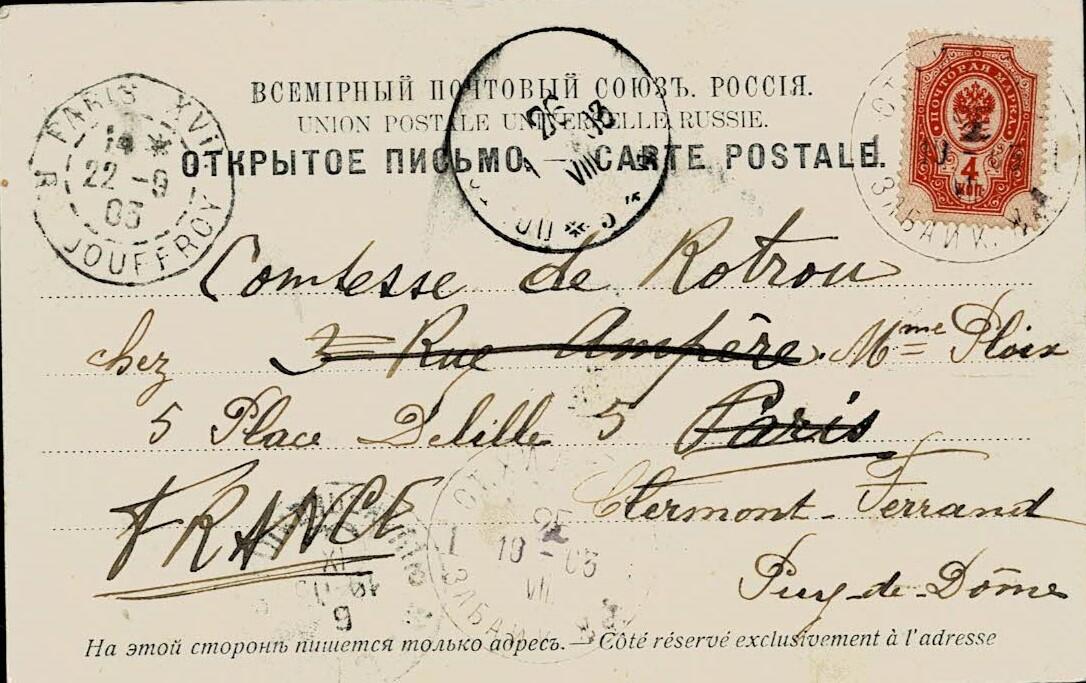 ВСЕМІРНЫЙ ПОЧТОВЫЙ СОЮЗЪ. РОССІЯ.
UNION POSTALE UNIVERSELLE RUSSIE.
ОТКРЫТОЕ ПИСЬМО. — CARTE POSTALE.
PARIS XVII
22 - 9
03
R. JOUFFROY
26
VIII
ПОЧТОВАЯ МАРКА
4
КОП.
ЗАБАЙК.
Comtesse de Rotrou
chez 3 Rue Ampère. Mme Ploix
5 Place Delille 5 Paris
FRANCE Clermont-Ferrand
Puy-de-Dôme
VII
ЗАБАЙ
На этой сторонѣ пишется только адресъ. — Côté réservé exclusivement à l'adresse